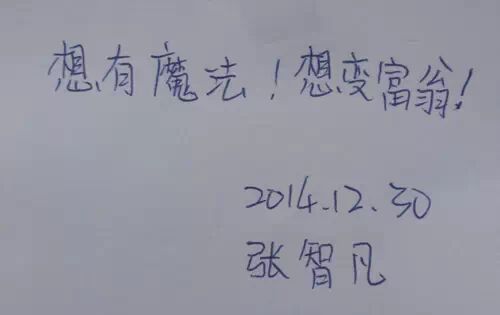 想有魔法！想变富翁！
2014.12.30
张智凡